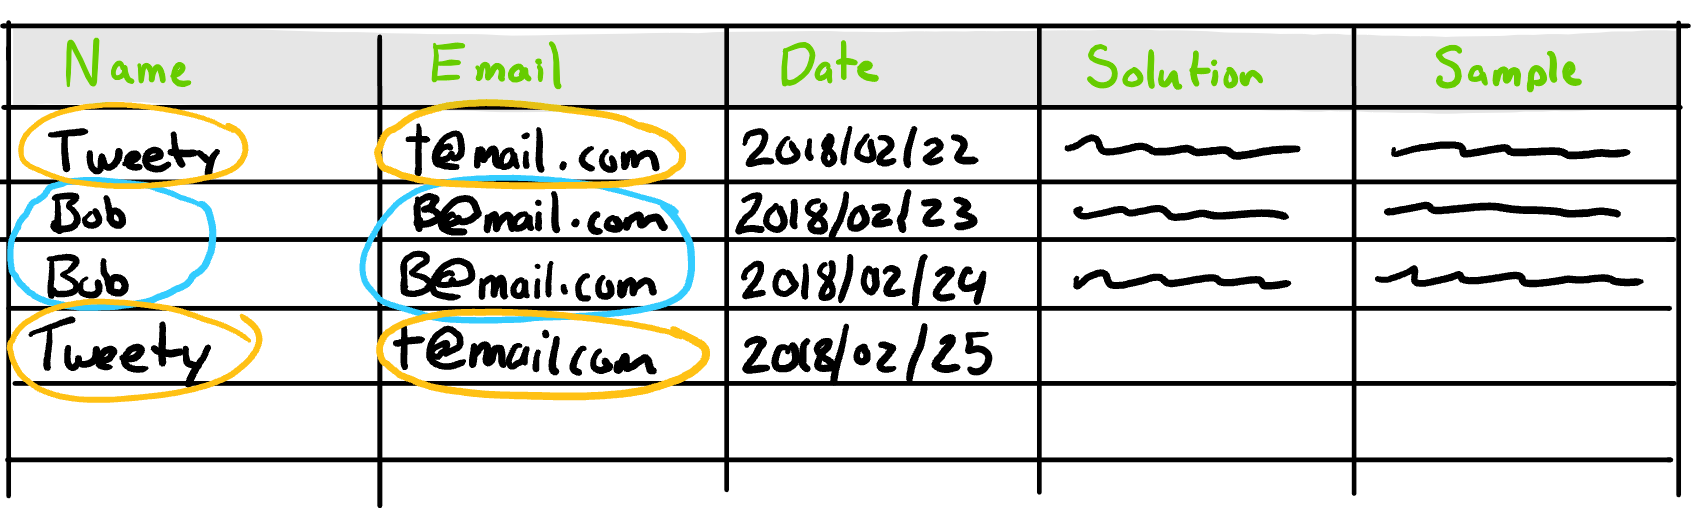 Name Email Date Solution Sample
Tweety t@mail.com 2018/02/22
Bob B@mail.com 2018/02/23
Bob B@mail.com 2018/02/24
Tweety t@mailcom 2018/02/25